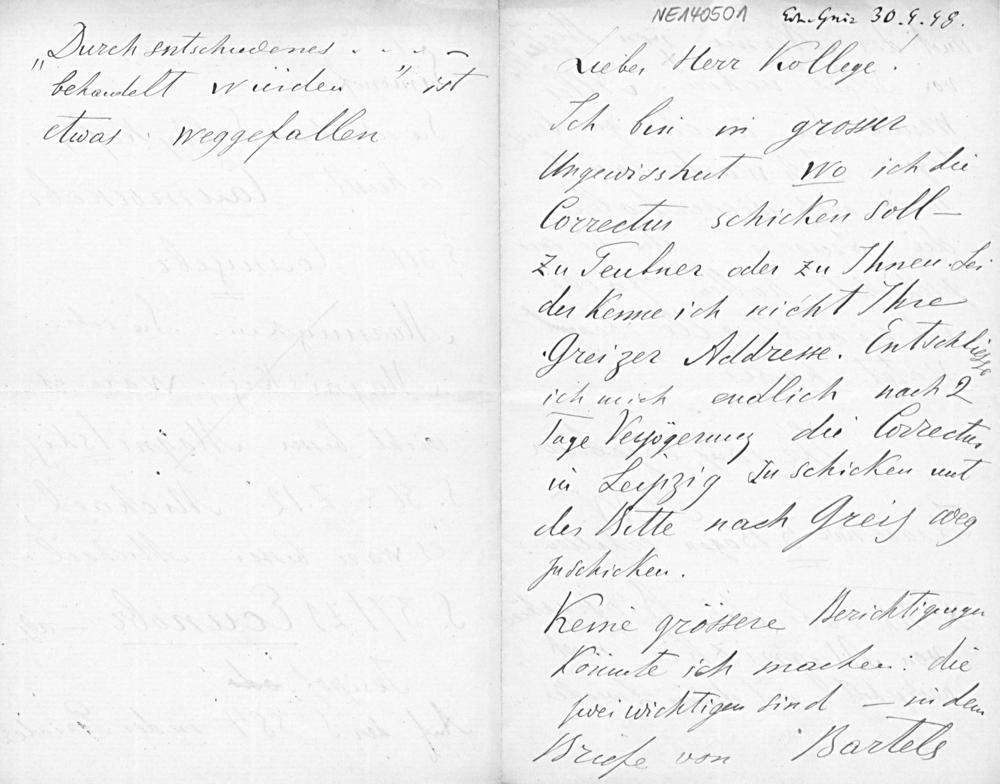 „Durch entschiedenes . . . . –
behandelt würden" ist
etwas weggefallen
NE140501
30.9.98.
Lieber Herr Kollege!
Ich bin in grosser
Ungewissheit wo ich die
Correctur schicken soll –
zu Teubner oder zu Ihnen. Lei
der kenne ich nicht Ihre
Greizer Addresse. Entschliesse
ich mich endlich nach 2
Tage Verzögerung die Correctur
in Leipzig zu schicken mit
der Bitte nach Greiz weg
zuschicken.
Keine grössere Berichtigungen
könnte ich machen: die
zwei wichtigen sind – in dem
Briefe von Bartels